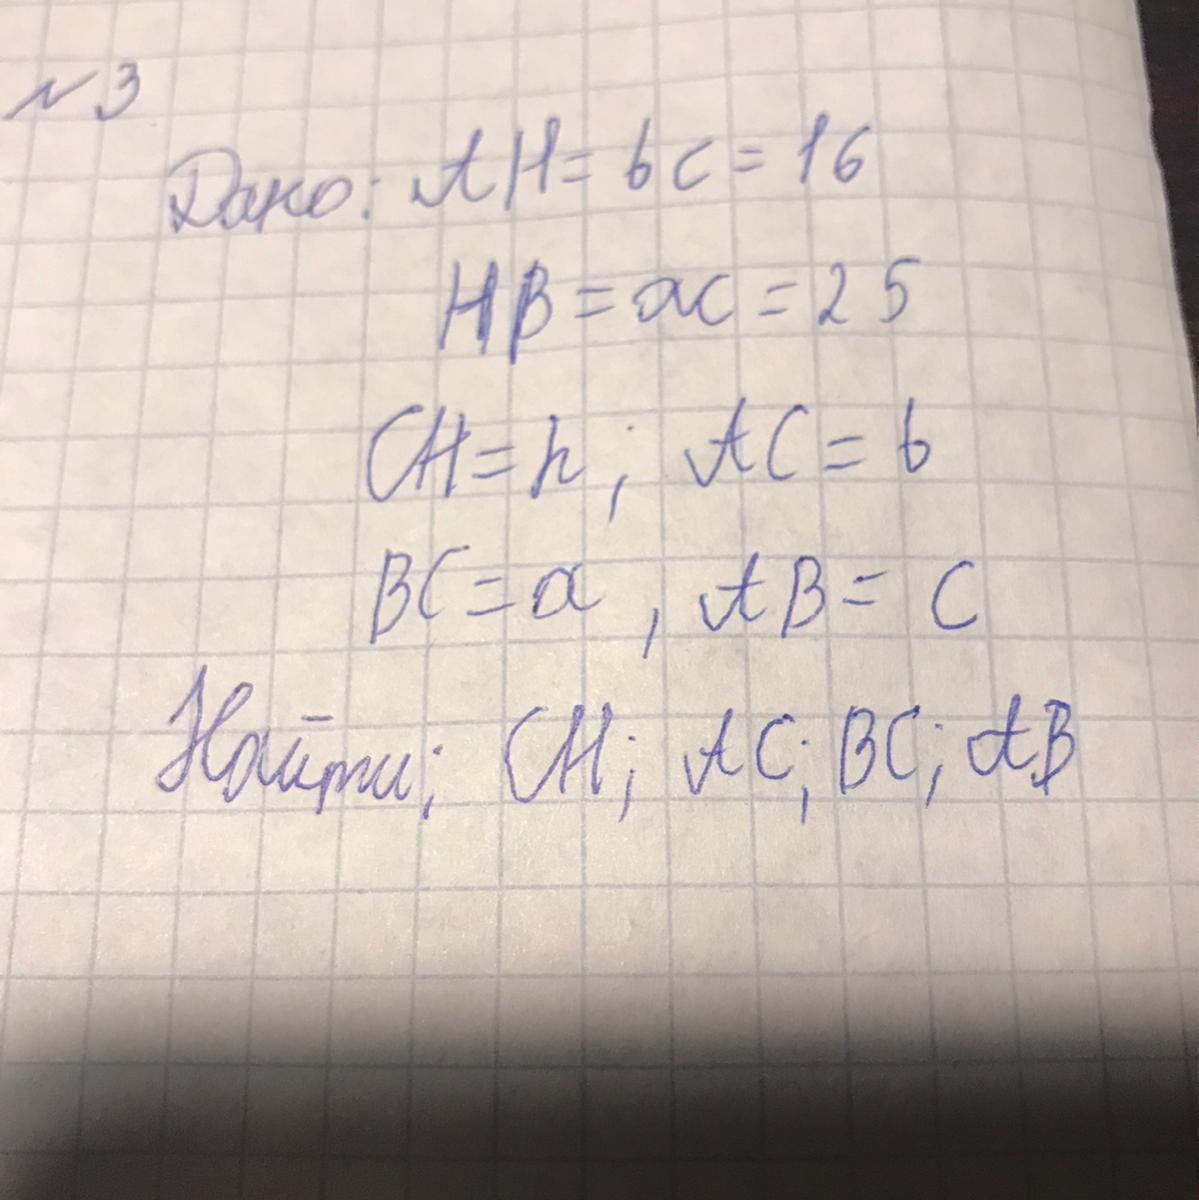 №3
Дано: AH = bc = 16
HB = ac = 25
CH = h; AC = b
BC = a, AB = c
Найти; CH; AC; BC; AB